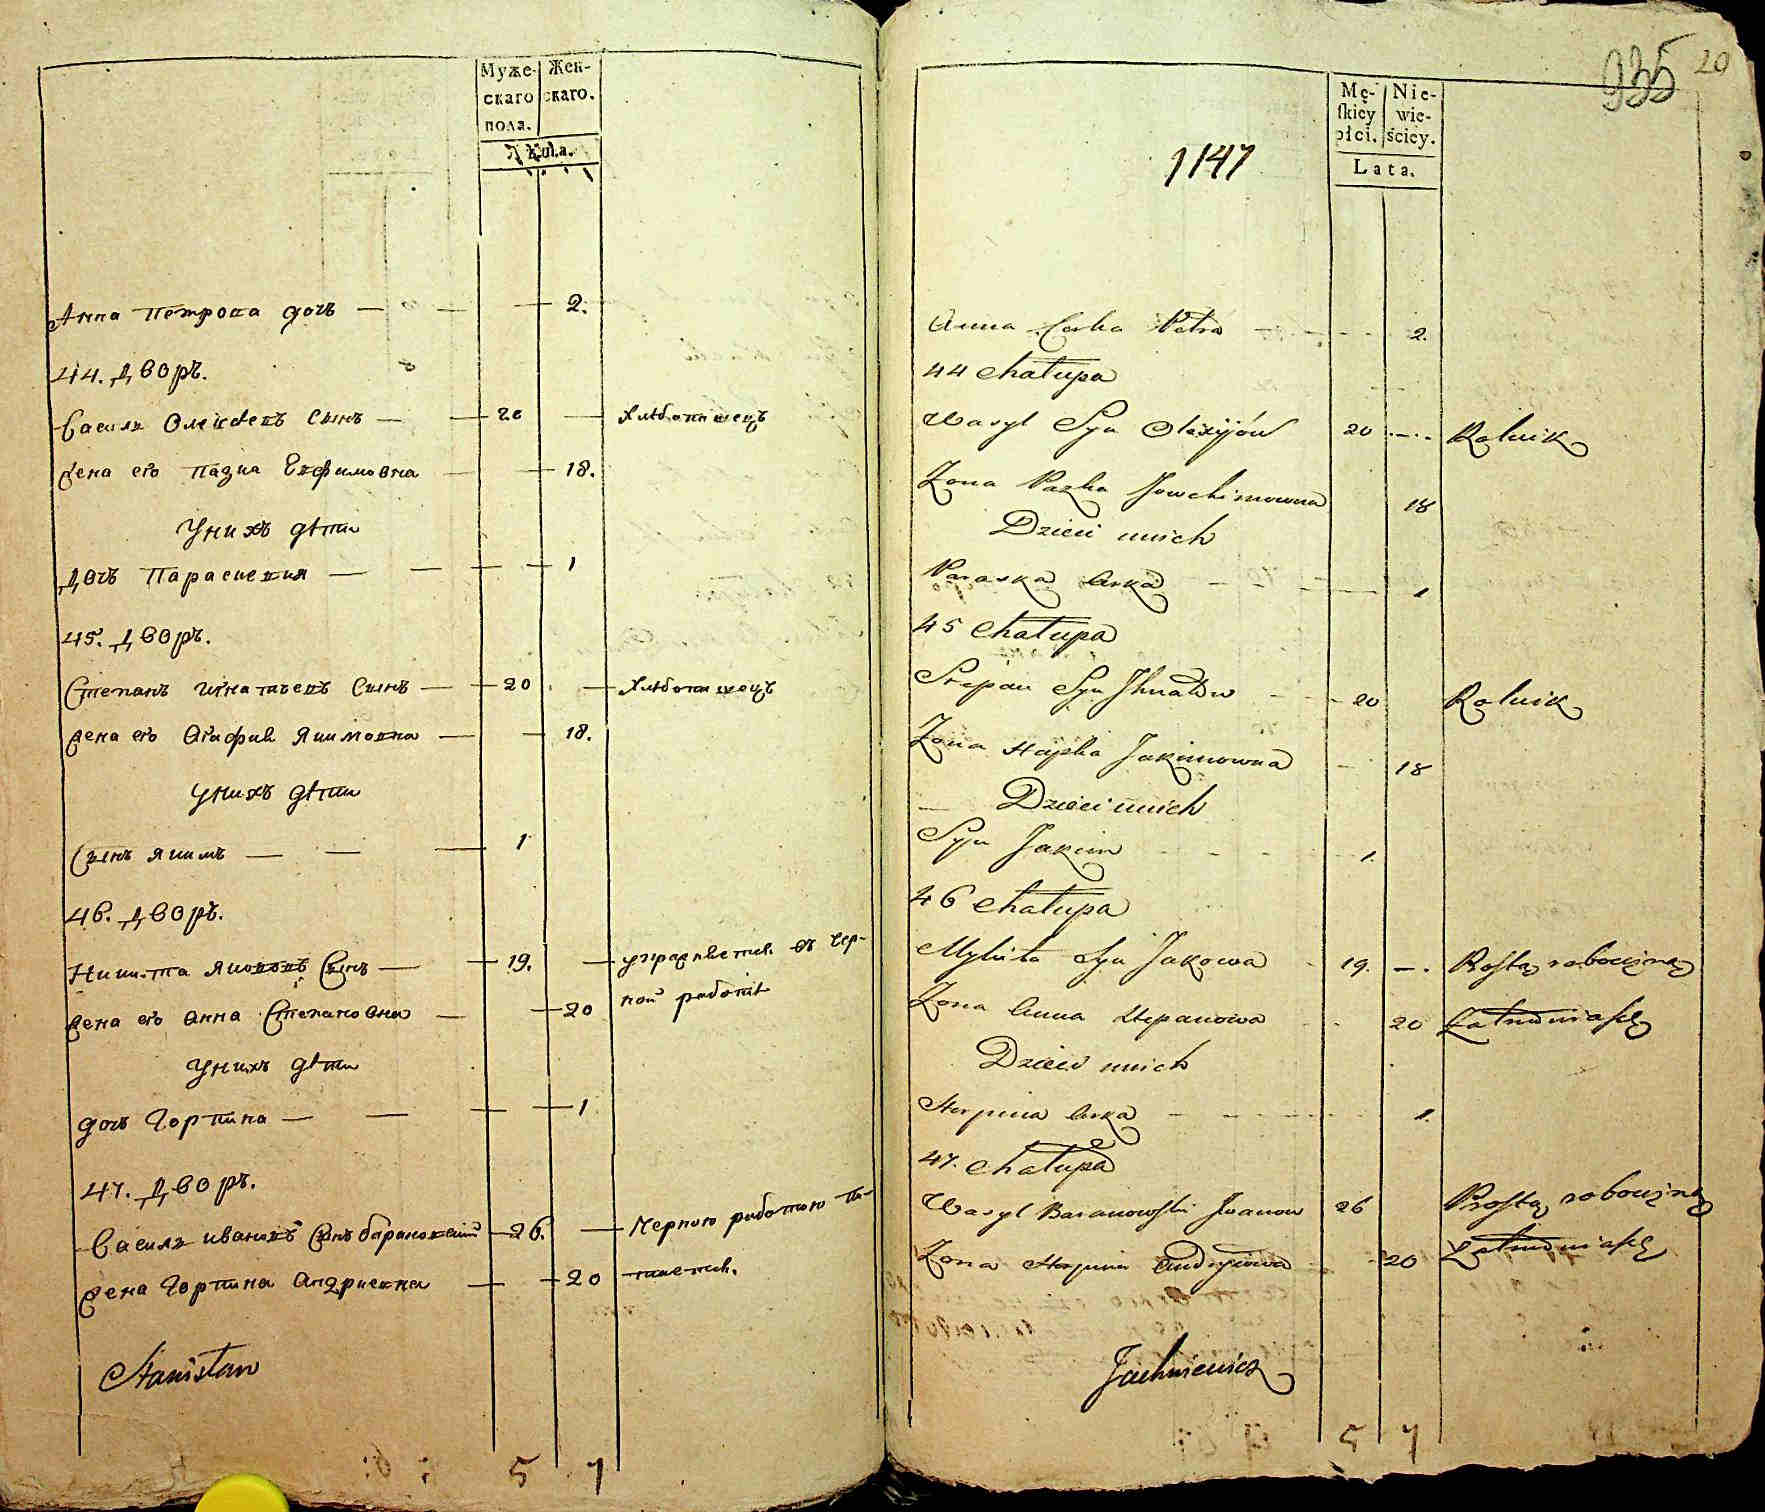 Муже-
скаго
пола.
Жен-
скаго.
Анна Петрова дочь — — — 2.
44. Дворъ.
Василь Олексѣевъ Сынъ — — 20 — Хлѣбопашецъ
Жена его Пазка Евфимовна — — 18.
У нихъ дѣти
Дочь Парасковия — — — — 1
45. Дворъ.
Степанъ Игнатьевъ Сынъ — — 20 — Хлѣбопашецъ
Жена его Агафия Якимовна — — 18.
У нихъ дѣти
Сынъ Якимъ — — — 1
46. Дворъ.
Никита Якововъ Сынъ — — 19. — упражняется въ чер-
Жена его Анна Степановна — — 20 ной работѣ
У нихъ дѣти
дочь Горпина — — — — 1
47. Дворъ.
Василь Ивановъ Сынъ барановский — 26. — Черною работою пи-
Жена Горпина Андриевна — — 20 тается.
Stanisław
5 7
935 20
Mę-
skiey
płci.
Nie-
wie-
ściey.
Lata.
1147
Anna Corka Petra — 2.
44 Chałupa
Wasyl Syn Olexijów 20 — Rolnik
Zona Pazka Jowchimowna 18
Dzieci unich
Paraska Corka — 1
45 Chałupa
Stepan Syn Jhnatów — 20 Rolnik
Zona Hapka Jakimowna — 18
Dzieci unich
Syn Jakim — 1.
46 Chałupa
Mykita Syn Jakowa 19. — Prostą robocizną
Zona Anna Stepanowa 20 Zatrudnia się
Dzieci unich
Horpina Corka — 1.
47. Chałupa
Wasyl Baranowski Jwanow 26 Prostą robocizną
Zona Horpina Andryiowa 20 Zatrudnia się
Jachniewicz
5 7